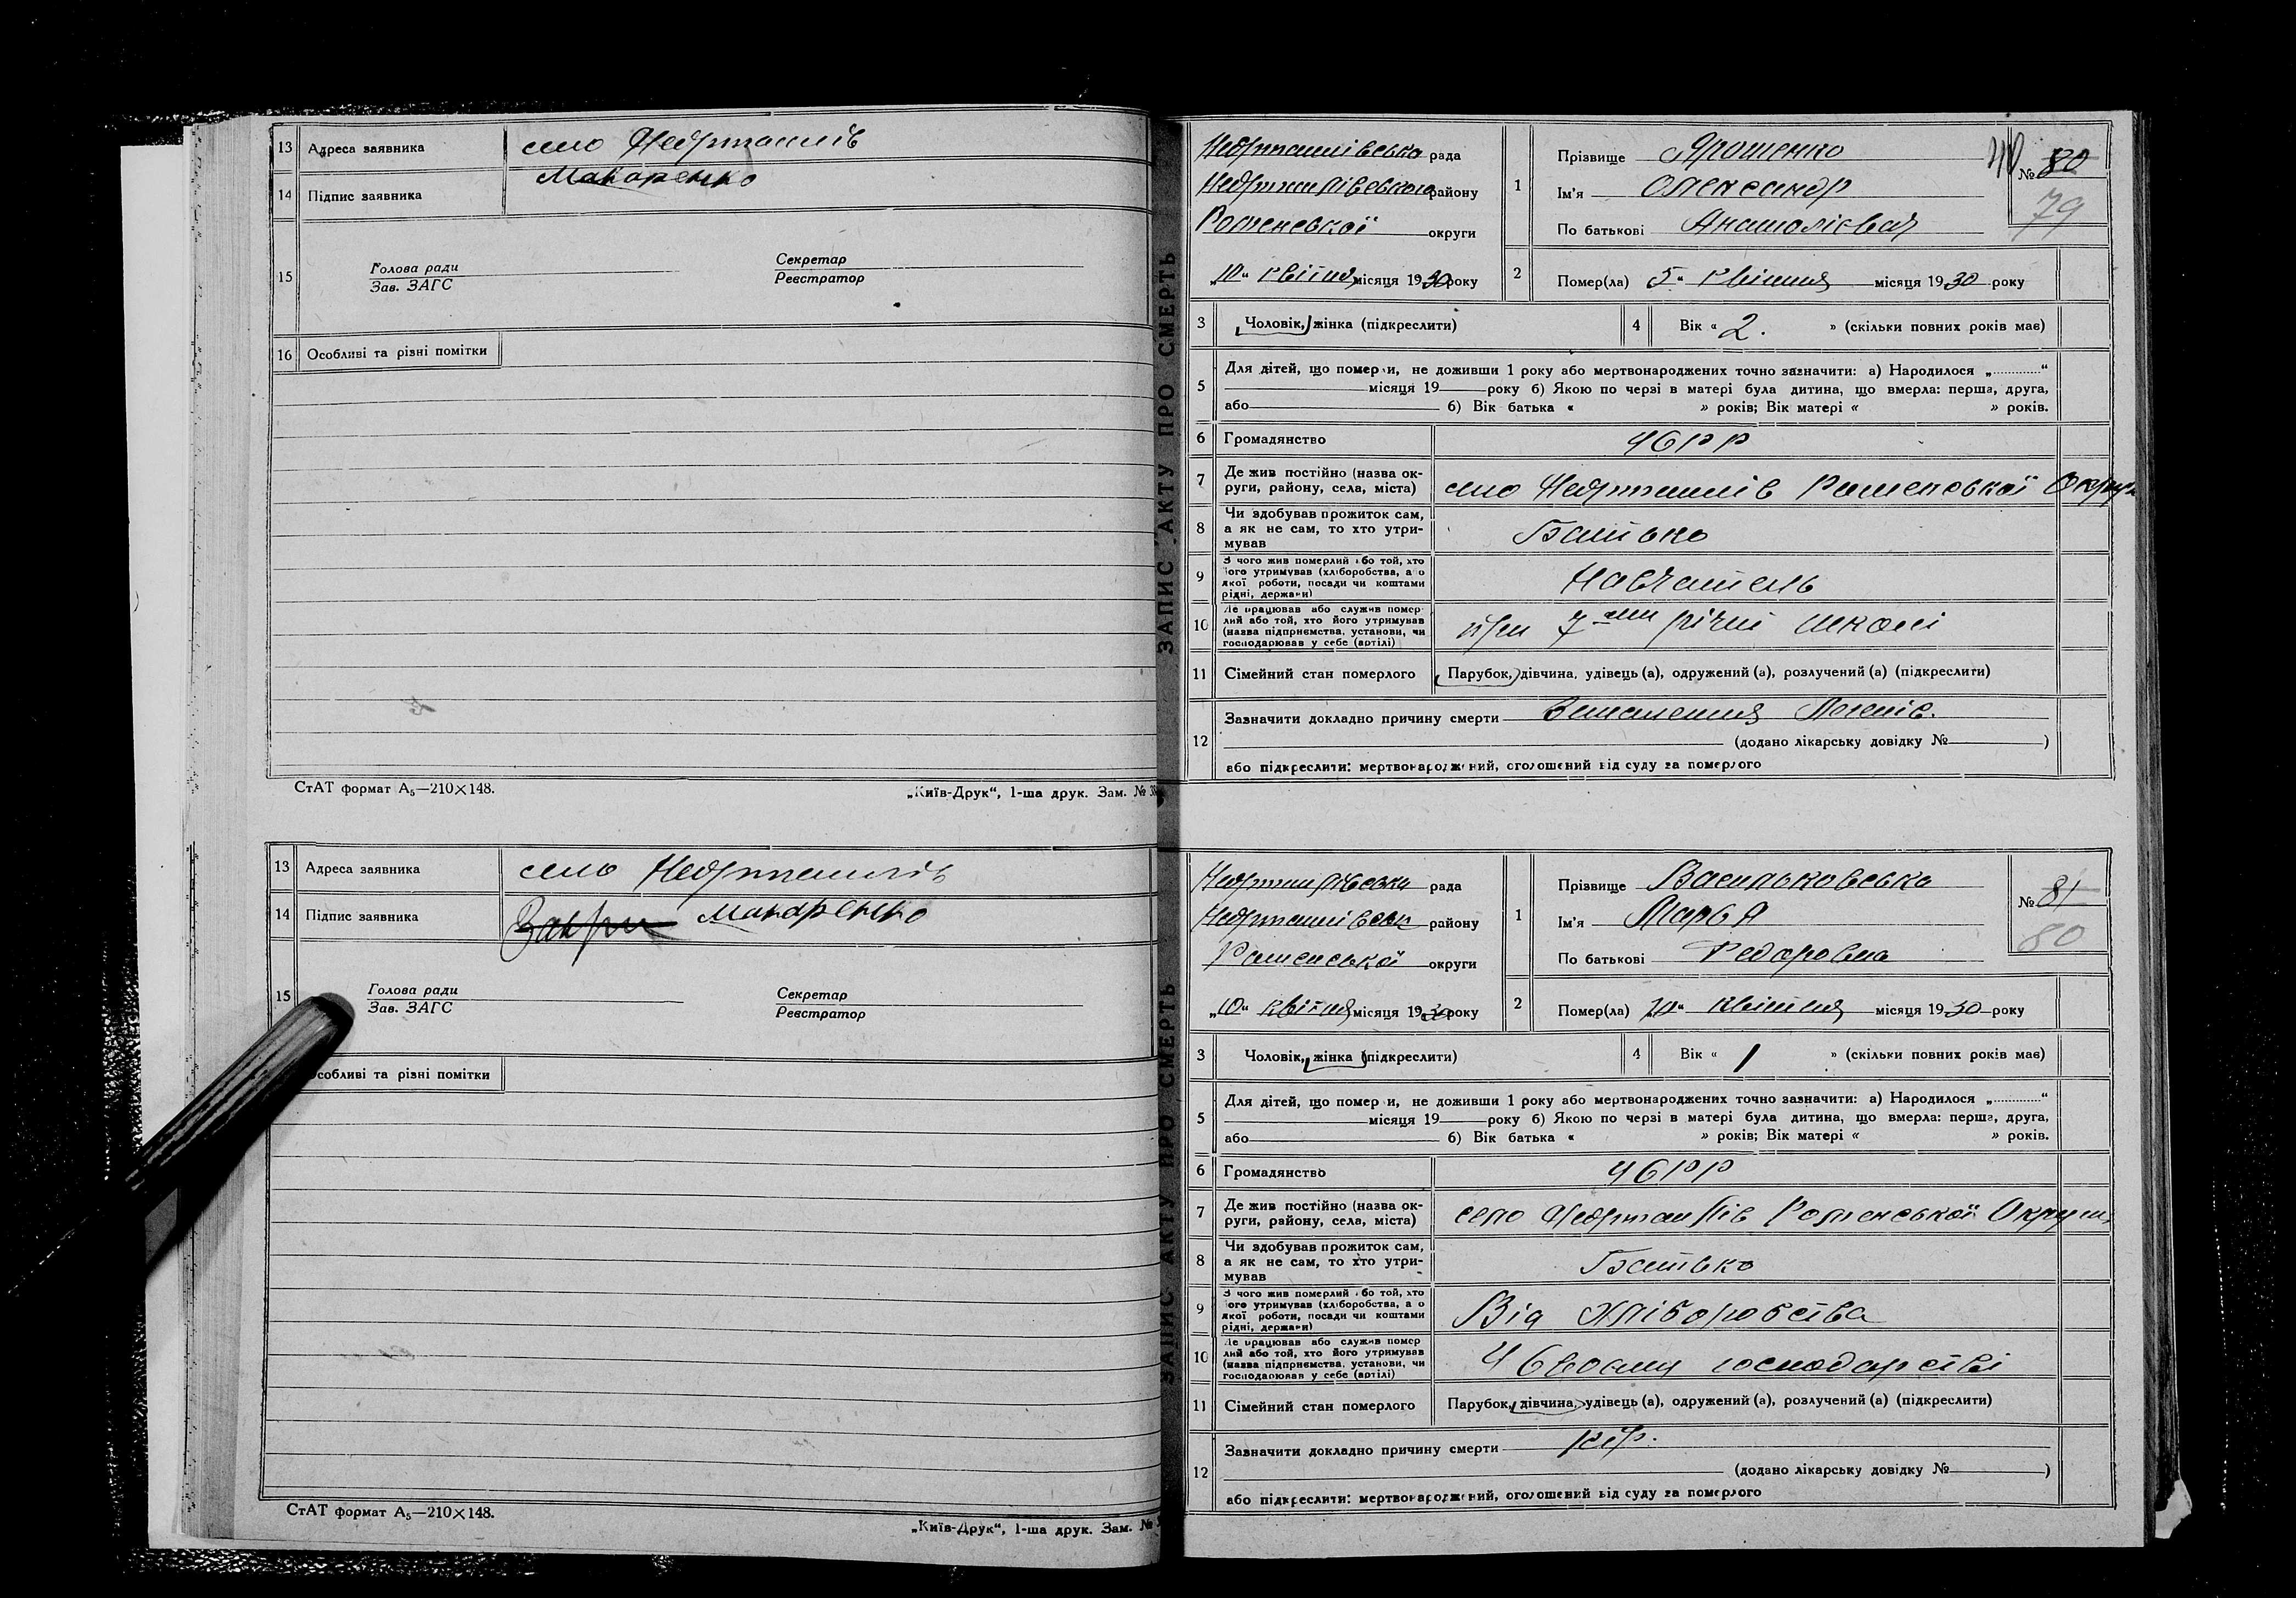 13 Адреса заявника село Недригайлів
14 Підпис заявника Макаренко
15 Голова ради
Зав. ЗАГС
Секретар
Реєстратор
16 Особливі та різні помітки
СтАТ формат А₅—210×148.
„Київ-Друк“, 1-ша друк. Зам. №
13 Адреса заявника село Недригайлів
14 Підпис заявника Макаренко
15 Голова ради
Зав. ЗАГС
Секретар
Реєстратор
Особливі та різні помітки
СтАТ формат А₅—210×148.
„Київ-Друк“, 1-ша друк. Зам. №
ЗАПИС АКТУ ПРО СМЕРТЬ
Недригайлівська рада
Недригайлівського району
Роменської округи
„10“ квітня місяця 1930 року
1 Прізвище Ярошенко
Ім'я Олександр
По батькові Анатолієвич
№ 80
79
2 Помер(ла) 5“ квітня місяця 1930 року
3 Чоловік, жінка (підкреслити)
4 Вік « 2. » (скільки повних років має)
5 Для дітей, що померли, не доживши 1 року або мертвонароджених точно зазначити: а) Народилося „............“
місяця 19 року б) Якою по черзі в матері була дитина, що вмерла: перша, друга,
або б) Вік батька « » років; Вік матері « » років.
6 Громадянство УСРР
7 Де жив постійно (назва ок-
руги, району, села, міста) село Недригайлів Роменської Округи
8 Чи здобував прожиток сам,
а як не сам, то хто утри-
мував Батько
9 З чого жив померлий або той, хто
його утримував (хліборобства, а о
якої роботи, посади чи коштами
рідні, держави) Навчитель
10 Де працював або служив помер-
лий або той, хто його утримував
(назва підприємства, установи, чи
господарював у себе (артілі) при 7ми річній школі
11 Сімейний стан померлого Парубок, дівчина, удівець (а), одружений (а), розлучений (а) (підкреслити)
12 Зазначити докладно причину смерти Запалення Легенів.
(додано лікарську довідку № )
або підкреслити: мертвонароджений, оголошений від суду за померлого
ЗАПИС АКТУ ПРО СМЕРТЬ
Недригайлівська рада
Недригайлівськ району
Роменської округи
„10“ квітня місяця 1930 року
1 Прізвище Васильковська
Ім'я Марья
По батькові Федоровна
№ 81
80
2 Помер(ла) 10“ квітня місяця 1930 року
3 Чоловік, жінка (підкреслити)
4 Вік « 1 » (скільки повних років має)
5 Для дітей, що померли, не доживши 1 року або мертвонароджених точно зазначити: а) Народилося „............“
місяця 19 року б) Якою по черзі в матері була дитина, що вмерла: перша, друга,
або б) Вік батька « » років; Вік матері « » років.
6 Громадянство УСРР
7 Де жив постійно (назва ок-
руги, району, села, міста) село Недригайлів Роменської Округи
8 Чи здобував прожиток сам,
а як не сам, то хто утри-
мував Батько
9 З чого жив померлий або той, хто
його утримував (хліборобства, а о
якої роботи, посади чи коштами
рідні, держави) Від Хліборобства
10 Де працював або служив помер
лий або той, хто його утримував
(назва підприємства, установи, чи
господарював у себе (артілі) У своєму господарстві
11 Сімейний стан померлого Парубок, дівчина, удівець (а), одружений (а), розлучений (а) (підкреслити)
12 Зазначити докладно причину смерти кір.
(додано лікарську довідку № )
або підкреслити: мертвонароджений, оголошений від суду за померлого